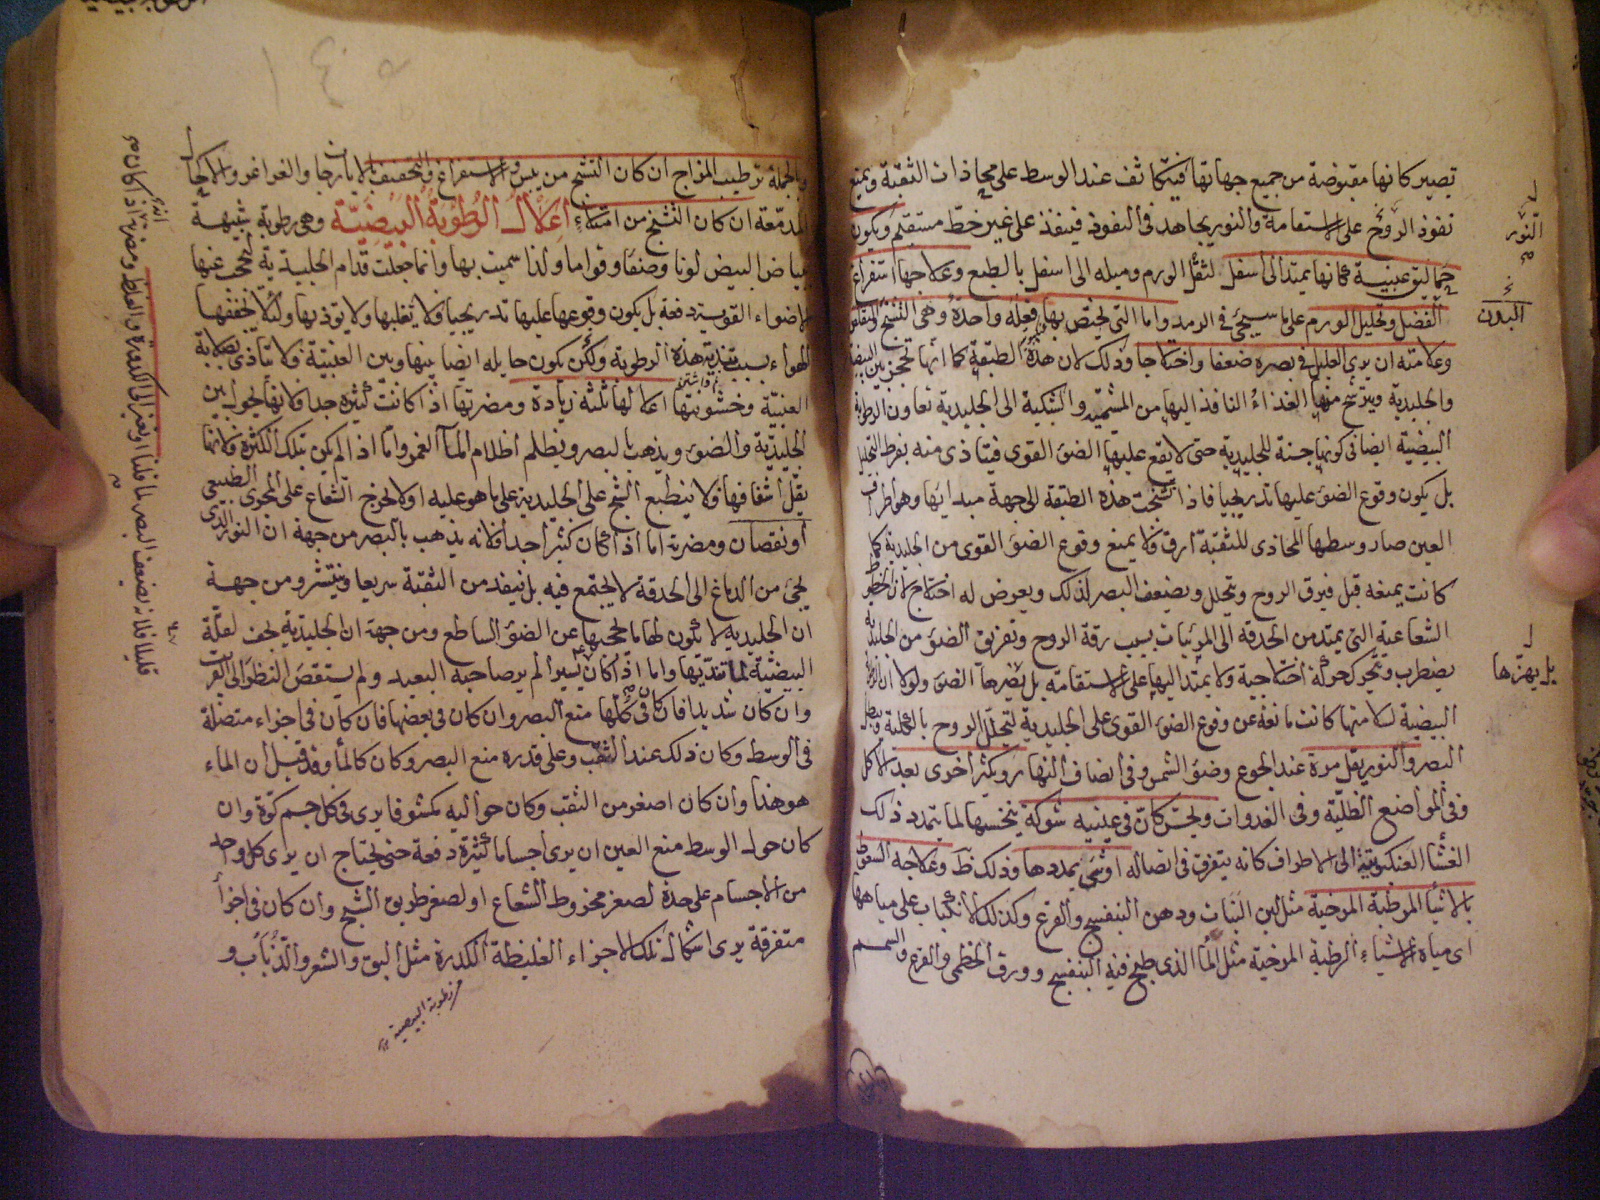 تصير كانها مقبوضة من جميع جهاتها فيتكاثف عند الوسط على محاذات الثقبة ويمنع
نفوذ الروح على الاستقامة والنور يجاهد في النفوذ فينفذ على غير خط مستقيم ويكون
الى اسفل لثقل الورم وميله الى اسفل بالطبع وعلاجها استفراغ
الفضل وتحليل الورم على ما سيجئ في الرمد واما التي تختص بها فعلة واحدة وهي التشنج
وعلامته ان يرى العليل في بصره ضعفا واختلاجا وذلك لان هذه الطبقة كما انها تحجز بين البيضية
والجليدية ويترشح منها الغذاء النافذ اليها من المشيمية والشبكية الى الجليدية تعاون الرطوبة
البيضية ايضا في كونها جنة للجليدية حتى لا يقع عليها الضوء القوى فيتأذى منه بفرط التحليل
بل يكون وقوع الضوء عليها تدريجيا فاذا تشنجت هذه الطبقة الى جهة مبدائها وهو اطراف
العين صار وسطها المحاذى للثقبة ارق فلا يمنع وقوع الضوء القوى من الجليدية كما
كانت يمنعه قبل فيرق الروح ويتحلل ويضعف البصر لذلك ويعرض له اختلاج لان الخطوط
الشعاعية التي يمتد من الحدقة الى المرئيات بسبب رقة الروح وتفريق الضوء من الجليدية
يضطرب ويتحرك حركة اختلاجية ولا يمتد اليها على الاستقامة بل يضرها الضوء ولولا ان الرطوبة
البيضية لسلامتها كانت مانعة عن وقوع الضوء القوى على الجليدية لتحلل الروح بالكلية وبطل
البصر والنور يقل مرة عند الجوع وضوء الشمس وفي انصاف النهار ويكثر اخرى بعد الاكل
وفي المواضع الظلية وفي الغدوات ويحس كان في عينيه شوكة ينخسها لما يتمدد ذلك
الغشاء العنكبوتية الى الاطراف كانه يتفرق في اتصاله او شئ يمددها وذلك ظ وعلاجه السعوط
بالاشياء المرطبة المرخية مثل لبن النبات ودهن البنفسج والقرع وكذلك الانكباب على مياهها
اى مياه الاشياء الرطبة المرخية مثل الماء الذى طبخ فيه البنفسج وورق الخطمى والقرع والسمسم
النور
البدن
بل يهزها
وبالجملة ترطيب المزاج ان كان التشنج من يبس والاستفراغ والتخفيف بالايارجات والغراغر والاكحال
المدمعة ان كان التشنج من امتلاء اعلال الرطوبة البيضية وهي رطوبة شبيهة
ببياض البيض لونا وصفاء وقواما ولذا سميت بها وانما جعلت قدام الجليدية لتحجب عنها
الاضواء القوية دفعة بل يكون وقوعها عليها تدريجيا فلا يغلبها ولا يوذيها ولئلا يجففها
الهواء بسبب تندية هذه الرطوبة ولكى يكون حايلة ايضا بينها وبين العنبية فلا يتأذى بصلابة
العنبية وخشونتها اعلالها ثلثة زيادة ومضرتها اذا كانت كثيرة جدا فلانها تحول بين
الجليدية والضوء ويذهب بالبصر ويظلم اظلام الماء الغمر واما اذا لم يكن بتلك الكثرة فلانها
يقل اشفافها فلا ينطبع الشبح على الجليدية على ما هو عليه او لا يخرج الشعاع على المجرى الطبيعى
او نقصان ومضرته اما اذا كان كثيرا جدا فلانه يذهب بالبصر من جهة ان النور الذى
يجئ من الدماغ الى الحدقة لا يجتمع فيه بل ينفذ من الثقبة سريعا وينتشر ومن جهة
ان الجليدية لا تكون لها ما يحجبها عن الضوء الساطع ومن جهة ان الجليدية يجف لعلة
البيضية لما تنديها واما اذا كان يسيرا لم ير صاحبه البعيد ولم يستقص النظر الى القريب
وان كان شديدا فان كان في كلها منع البصر وان كان في بعضها فان كان في اجزاء متصلة
في الوسط وكان ذلك عند الثقب وعلى قدره منع البصر وكان كالماء وقد قيل ان الماء
هو هذا وان كان اصغر من الثقب وكان حواليه مكشوفا يرى في كل جسم كوة وان
كان حول الوسط منع العين ان يرى اجساما كثيرة دفعة حتى يحتاج ان يرى كل واحد
من الاجسام على حدة لصغر مخروط الشعاع او لصغر طريق الشبح وان كان في اجزاء
متفرقة يرى اشكال تلك الاجزاء الغليظة الكدرة مثل البق والشعر والذباب و
من رطوبة البيضية
او تغير الى الكدورة والغلظ ومضرته اذا كان
قليلا فلانه يضعف البصر لما قلنا
١٤٥